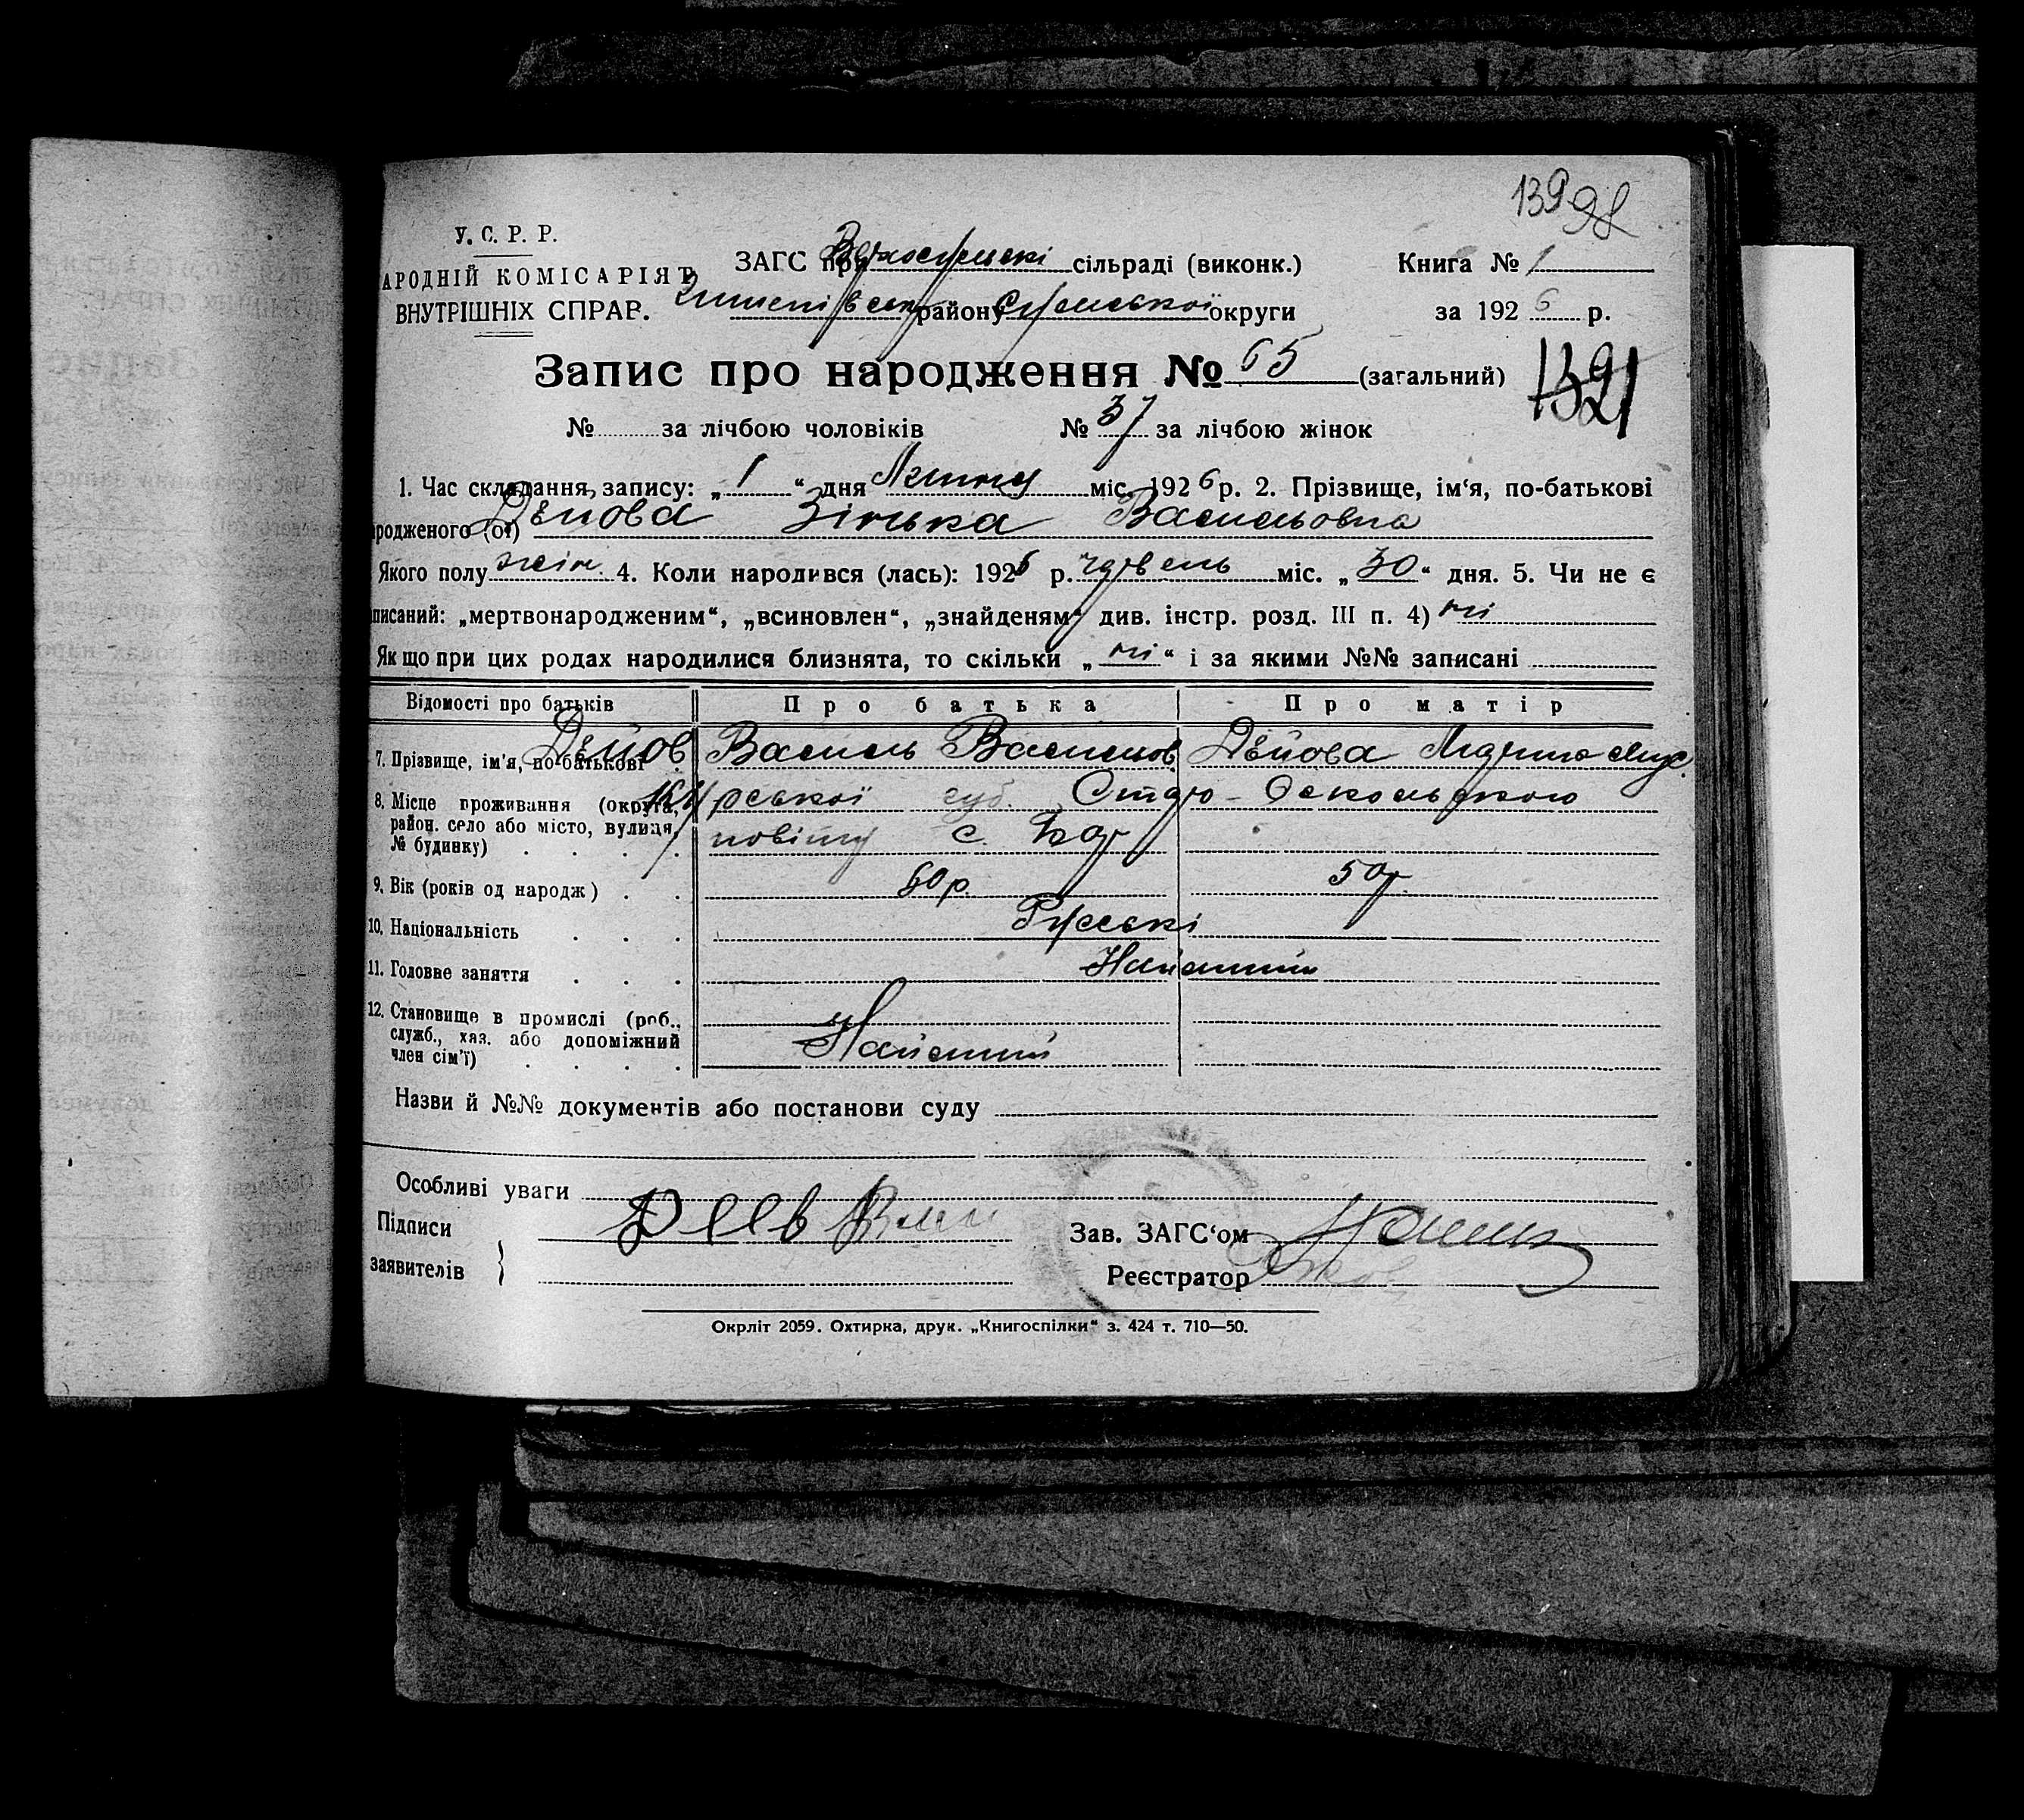 139 98
У. С. Р. Р.
АРОДНІЙ КОМІСАРІЯТ
ВНУТРІШНІХ СПРАВ.
ЗАГС при сільраді (виконк.)
району Сумської округи
Книга № 1
за 1926 р.
Запис про народження № 65 (загальний)
1391
№ за лічбою чоловіків № 37 за лічбою жінок
1. Час складання запису: „ 1 “ дня Липня міс. 1926 р. 2. Прізвище, ім‘я, по-батькові
родженого (ої) Дєйова Зінька Васильовна
Якого полу жін. 4. Коли народився (лась): 1926 р. червень міс. „ 30 “ дня. 5. Чи не є
писаний: „мертвонародженим“, „всиновлен“, „знайденям“ див. інстр. розд. III п. 4) ні
Якщо при цих родах народилися близнята, то скільки „ ні “ і за якими №№ записані
Відомості про батьків Про батька Про матір
7. Прізвище, ім'я, по-батькові Дєйов Василь Васильов Дєйова
8. Місце проживання (округа, район, село або місто, вулиця, № будинку) Курської губ. Старо-Оскольского
повіту с.
9. Вік (років од народж) 60 р. 50 р.
10. Національність Руські
11. Головне заняття Наймит
12. Становище в промислі (роб., служб., хаз. або допоміжний член сім'ї) Наймит
Назви й №№ документів або постанови суду
Особливі уваги
Підписи
заявителів
Деев
Зав. ЗАГС‘ом
Реєстратор
Окрліт 2059. Охтирка, друк. „Книгоспілки“ з. 424 т. 710—50.